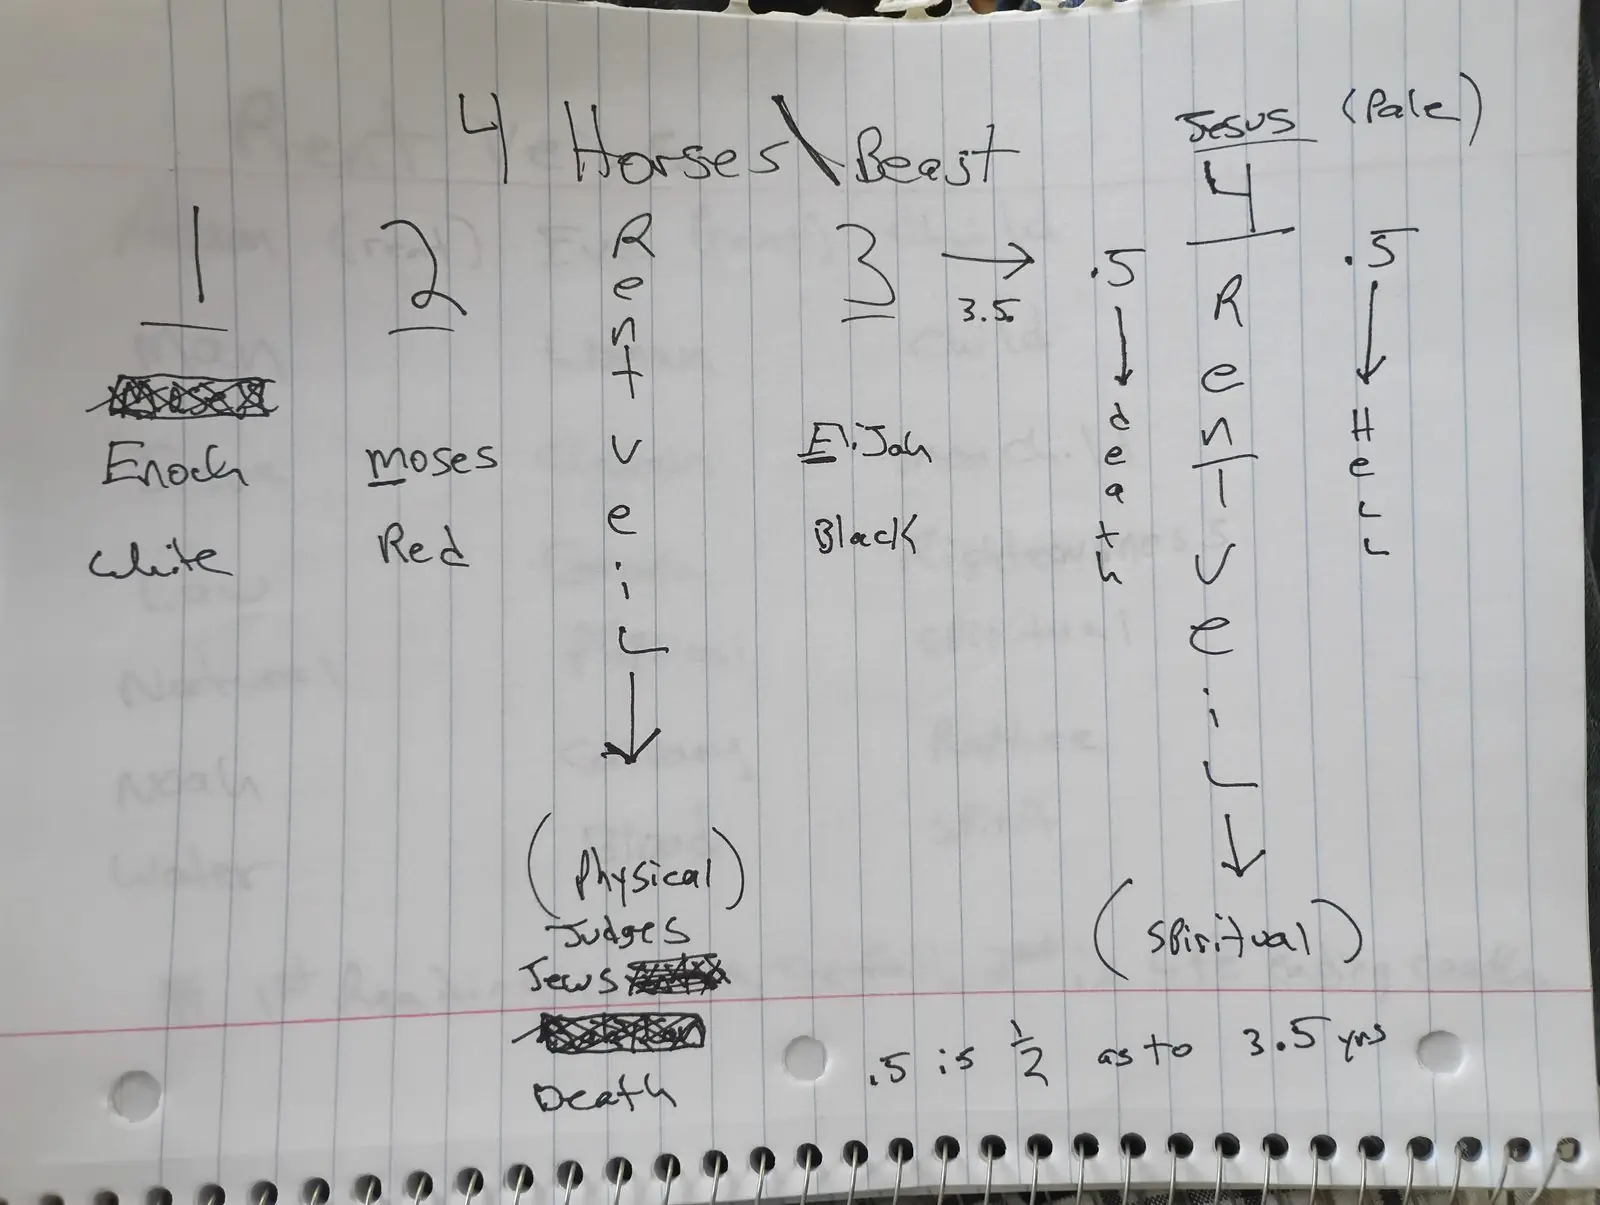 4 Horses\Beast
Jesus (Pale)
1 2 Rent veil 3 → .5 4 .5
3.5
Rent veil
death
Hell
Enoch moses EliJah
White Red Black
(Physical)
Judges
Jews
Death
(Spiritual)
.5 is 1/2 as to 3.5 yrs